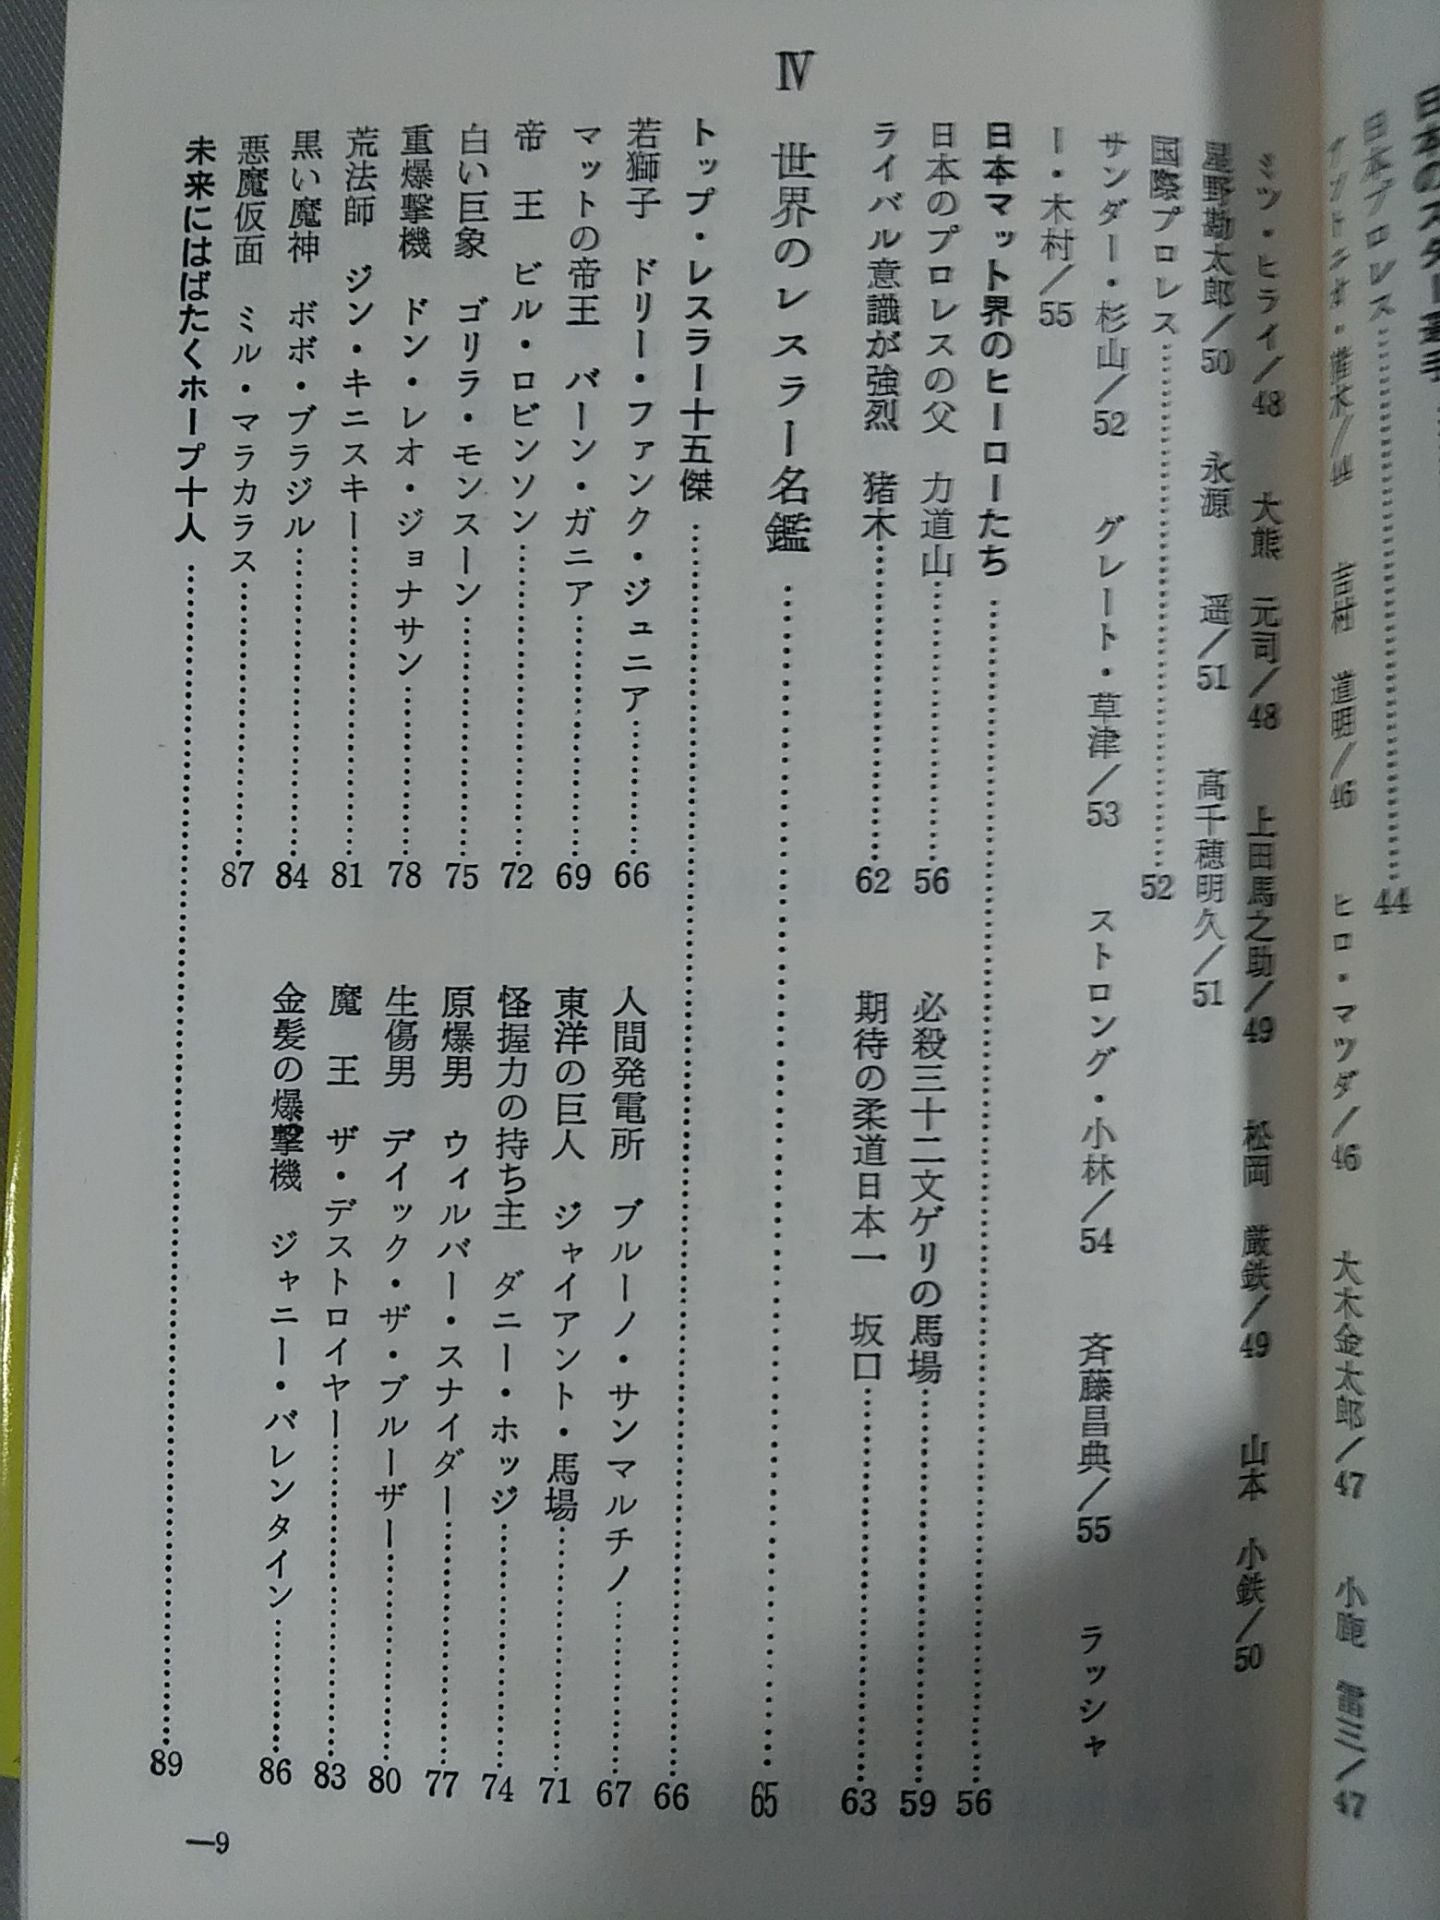 日本プロレス……44
吉村　道明／46　ヒロ・マツダ／46　大木金太郎／47　小鹿　雷三／47
ミツ・ヒライ／48　大熊　元司／48　上田馬之助／49　松岡　巌鉄／49　山本　小鉄／50
星野勘太郎／50　永源　遥／51　高千穂明久／51
国際プロレス……52
サンダー・杉山／52　グレート・草津／53　ストロング・小林／54　斉藤昌典／55　ラッシャ
ー・木村／55
日本マット界のヒーローたち……56
日本のプロレスの父　力道山……56
必殺三十二文ゲリの馬場……59
ライバル意識が強烈　猪木……62
期待の柔道日本一　坂口……63
Ⅳ　世界のレスラー名鑑……65
トップ・レスラー十五傑……66
若獅子　ドリー・ファンク・ジュニア……66
人間発電所　ブルーノ・サンマルチノ……67
マットの帝王　バーン・ガニア……69
東洋の巨人　ジャイアント・馬場……71
帝　王　ビル・ロビンソン……72
怪握力の持ち主　ダニー・ホッジ……74
白い巨象　ゴリラ・モンスーン……75
原爆男　ウィルバー・スナイダー……77
重爆撃機　ドン・レオ・ジョナサン……78
生傷男　デイック・ザ・ブルーザー……80
荒法師　ジン・キニスキー……81
魔　王　ザ・デストロイヤー……83
黒い魔神　ボボ・ブラジル……84
金髪の爆撃機　ジャニー・バレンタイン……86
悪魔仮面　ミル・マラカラス……87
未来にはばたくホープ十人……89
—9